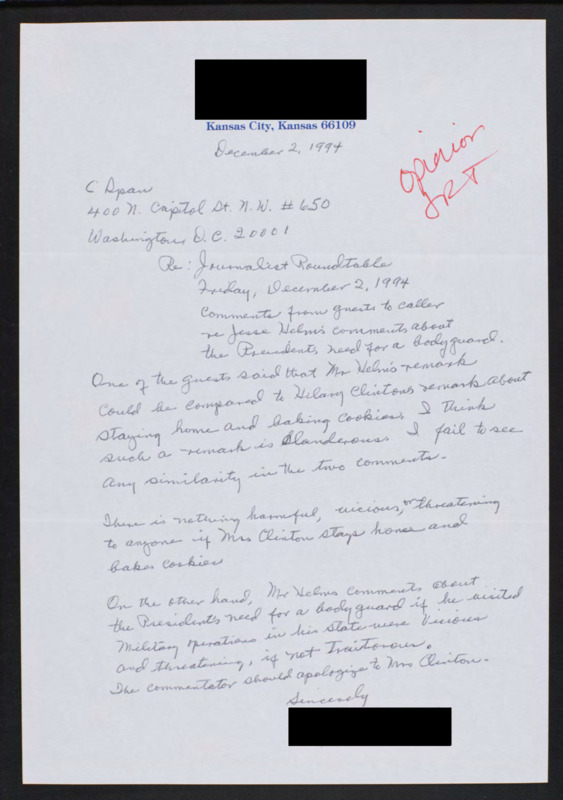 Kansas City, Kansas 66109
December 2, 1994
Opinion
JRT
C Span
400 N. Capitol St. N.W. # 650
Washington, D.C. 20001
Re: Journalist Roundtable
Friday, December 2, 1994
Comments from guests to caller
re Jesse Helms comments about
the Presidents need for a bodyguard.
One of the guests said that Mr Helms remark
could be compared to Hilary Clintons remark about
staying home and baking cookies. I think
such a remark is slanderous. I fail to see
any similarity in the two comments.
There is nothing harmful, vicious, or threatening
to anyone if Mrs Clinton stays home and
bakes cookies
On the other hand, Mr Helms comments about
the Presidents need for a bodyguard if he visited
Military operations in his state were vicious
and threatening, if not traitorous.
The commentator should apologize to Mrs Clinton.
Sincerely